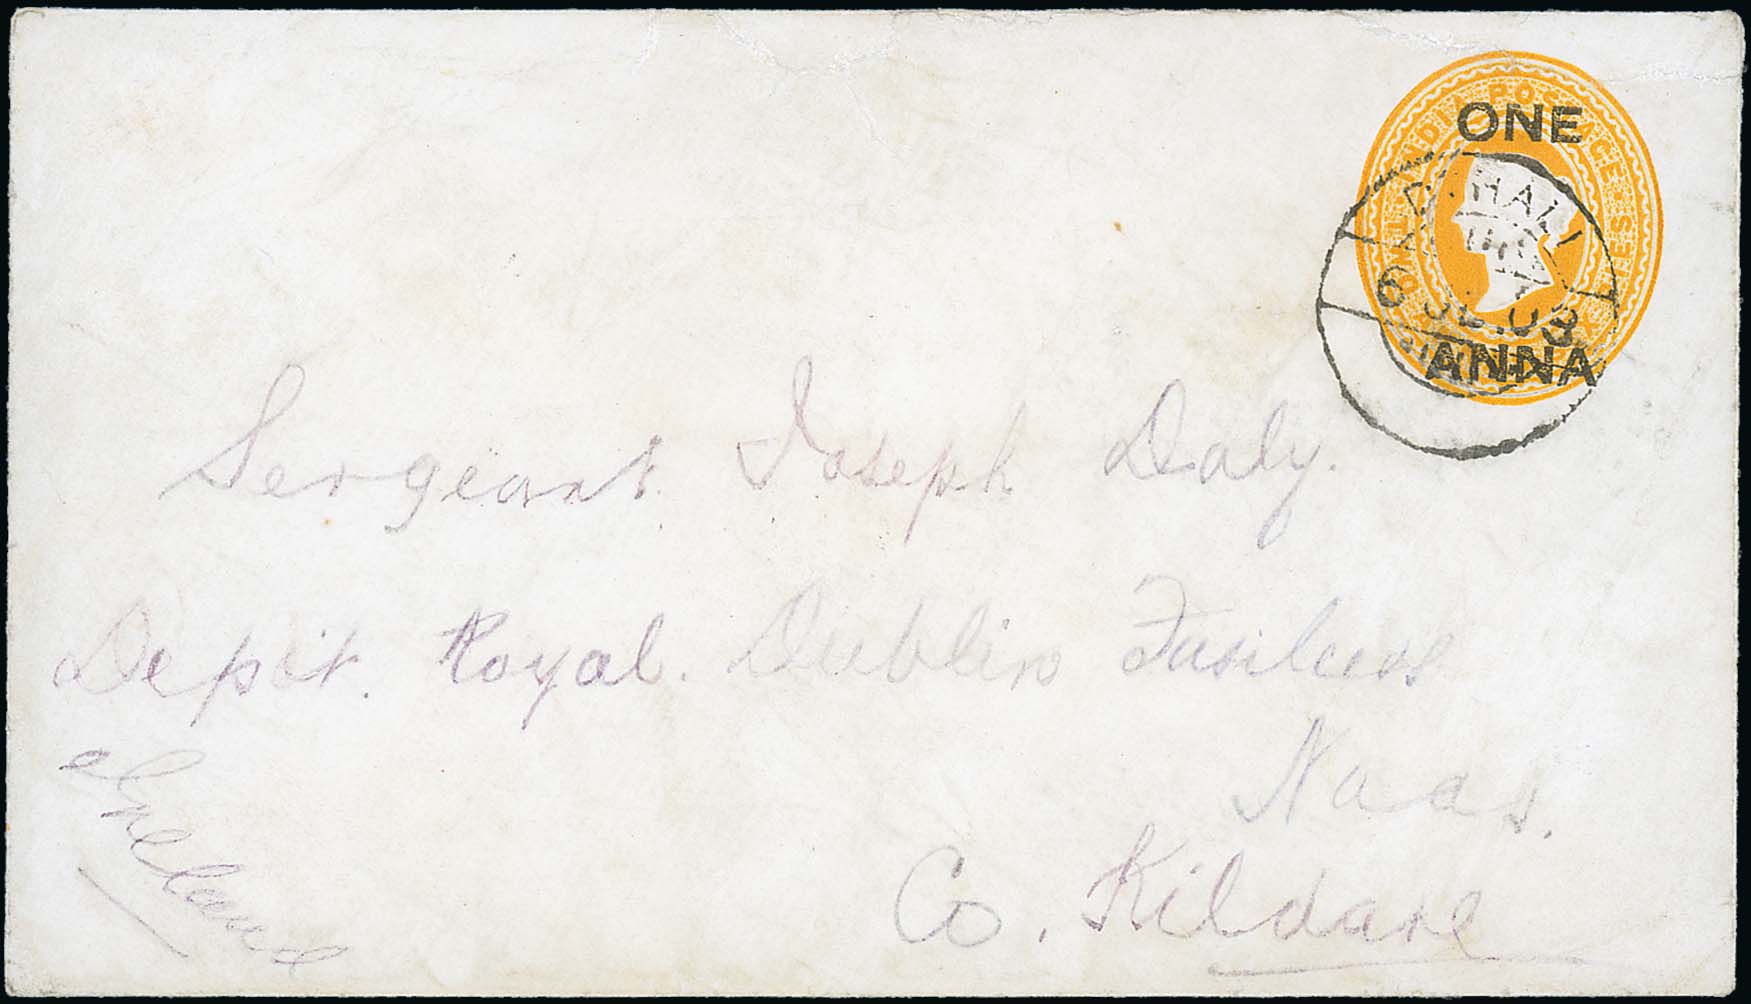 INDIA POSTAGE
ONE
ANNA
6 JU.03
Sergeant. Joseph Daly.
Depôt. Royal. Dublin Fusileers
Naas.
Co. Kildare
Ireland